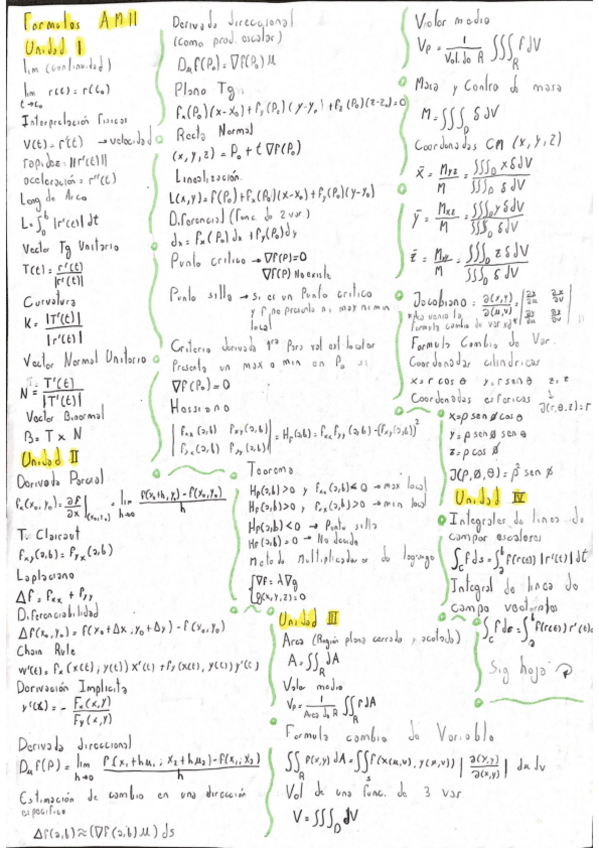 Formulas AMII
Unidad I
lim (continuidad)
lim r(t) = r(t₀)
t→t₀
Interpretación Fisicas
V(t) = r'(t) → velocidad
rapidez = ||r'(t)||
aceleración = r''(t)
Long de Arco
L = ∫₀ᵇ |r'(t)| dt
Vector Tg Unitario
T(t) = r'(t) / |r'(t)|
Curvatura
K = |T'(t)| / |r'(t)|
Vector Normal Unitario
N = T'(t) / |T'(t)|
Vector Binormal
B = T x N
Unidad II
Derivada Parcial
fx(x₀,y₀) = ∂f/∂x |(x₀,y₀) = lim h→0 f(x₀+h,y₀) - f(x₀,y₀) / h
T. Clairaut
Fxy(a,b) = Fyx(a,b)
Laplaciano
Δf = fxx + fyy
Diferenciabilidad
Δf(x₀,y₀) = f(x₀+Δx, y₀+Δy) - f(x₀,y₀)
Chain Rule
w'(t) = fx(x(t), y(t)) x'(t) + fy(x(t), y(t)) y'(t)
Derivación Implicita
y'(x) = - Fx(x,y) / Fy(x,y)
Derivada direccional
Dμ f(P) = lim h→0 f(x₁+hμ₁; x₂+hμ₂) - f(x₁; x₂) / h
Estimación de cambio en una dirección
especifica
Δf(a,b) ≈ (∇f(a,b) μ) ds
Derivada direccional
(como prod. escalar)
Dμ f(P₀) = ∇f(P₀) μ
Plano Tg
fx(P₀)(x-x₀) + fy(P₀)(y-y₀) + fz(P₀)(z-z₀) = 0
Recta Normal
(x,y,z) = P₀ + t ∇f(P₀)
Linealización
L(x,y) = f(P₀) + fx(P₀)(x-x₀) + fy(P₀)(y-y₀)
Diferencial (func de 2 var.)
dz = fx(P₀) dx + fy(P₀) dy
Punto critico → ∇f(P) = 0
∇f(P) No existe
Punto silla → si es un Punto critico
y f no presenta ni max ni min
local
Criterio derivada 1ra Para val ext locales
Presenta un max o min en P₀ si
∇f(P₀) = 0
Hessiano
| fxx(a,b) fxy(a,b) |
| fyx(a,b) fyy(a,b) | = Hf(a,b) = fxx fyy(a,b) - (fxy(a,b))²
Teorema
Hf(a,b) > 0 y fxx(a,b) < 0 → max local
Hf(a,b) > 0 y fxx(a,b) > 0 → min local
Hf(a,b) < 0 → Punto silla
Hf(a,b) = 0 → No decide
Metodo Multiplicador de lagrange
{ ∇f = λ∇g
g(x,y,z) = 0
Unidad III
Area (Región plana cerrada y acotada)
A = ∬R dA
Valor medio
Vp = 1 / Area de R ∬R f dA
Formula cambio de Variable
∬R f(x,y) dA = ∬S f(x(u,v), y(u,v)) | ∂(x,y) / ∂(u,v) | du dv
Vol de una func. de 3 var.
V = ∭D dV
Valor medio
Vp = 1 / Vol. de R ∭R f dV
Masa y Centro de masa
M = ∭D δ dV
Coordenadas CM (x, y, z)
x̄ = Myz / M = ∭D x δ dV / ∭D δ dV
ȳ = Mxz / M = ∭D y δ dV / ∭D δ dV
z̄ = Mxy / M = ∭D z δ dV / ∭D δ dV
Jacobiano = ∂(x,y) / ∂(u,v) = | ∂x/∂u ∂x/∂v |
Formula Cambio de Var.
Coordenadas cilindricas
x = r cos θ y = r sen θ z = z
J(r,θ,z) = r
Coordenadas esfericas
x = ρ sen ø cos θ
y = ρ sen ø sen θ
z = ρ cos ø
J(ρ,ø,θ) = ρ² sen ø
Unidad IV
Integrales de linea de
campos escalares
∫c f ds = ∫ₐᵇ f(r(t)) |r'(t)| dt
Integral de linea de
campo vectoriales
∫c f ds = ∫ₐᵇ f(r(t)) r'(t)
Sig hoja